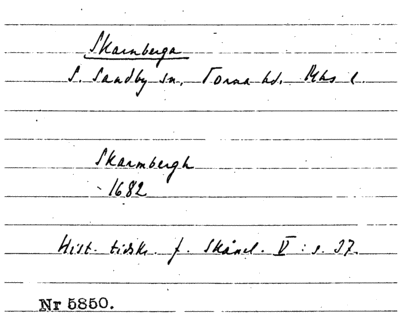 Skarnberga
S. Sandby sn, Torna hd. Mhs l.
Skarmbergh
1682
Hist. tidskr. f. Skånel. V : s. 37.
Nr 5850.